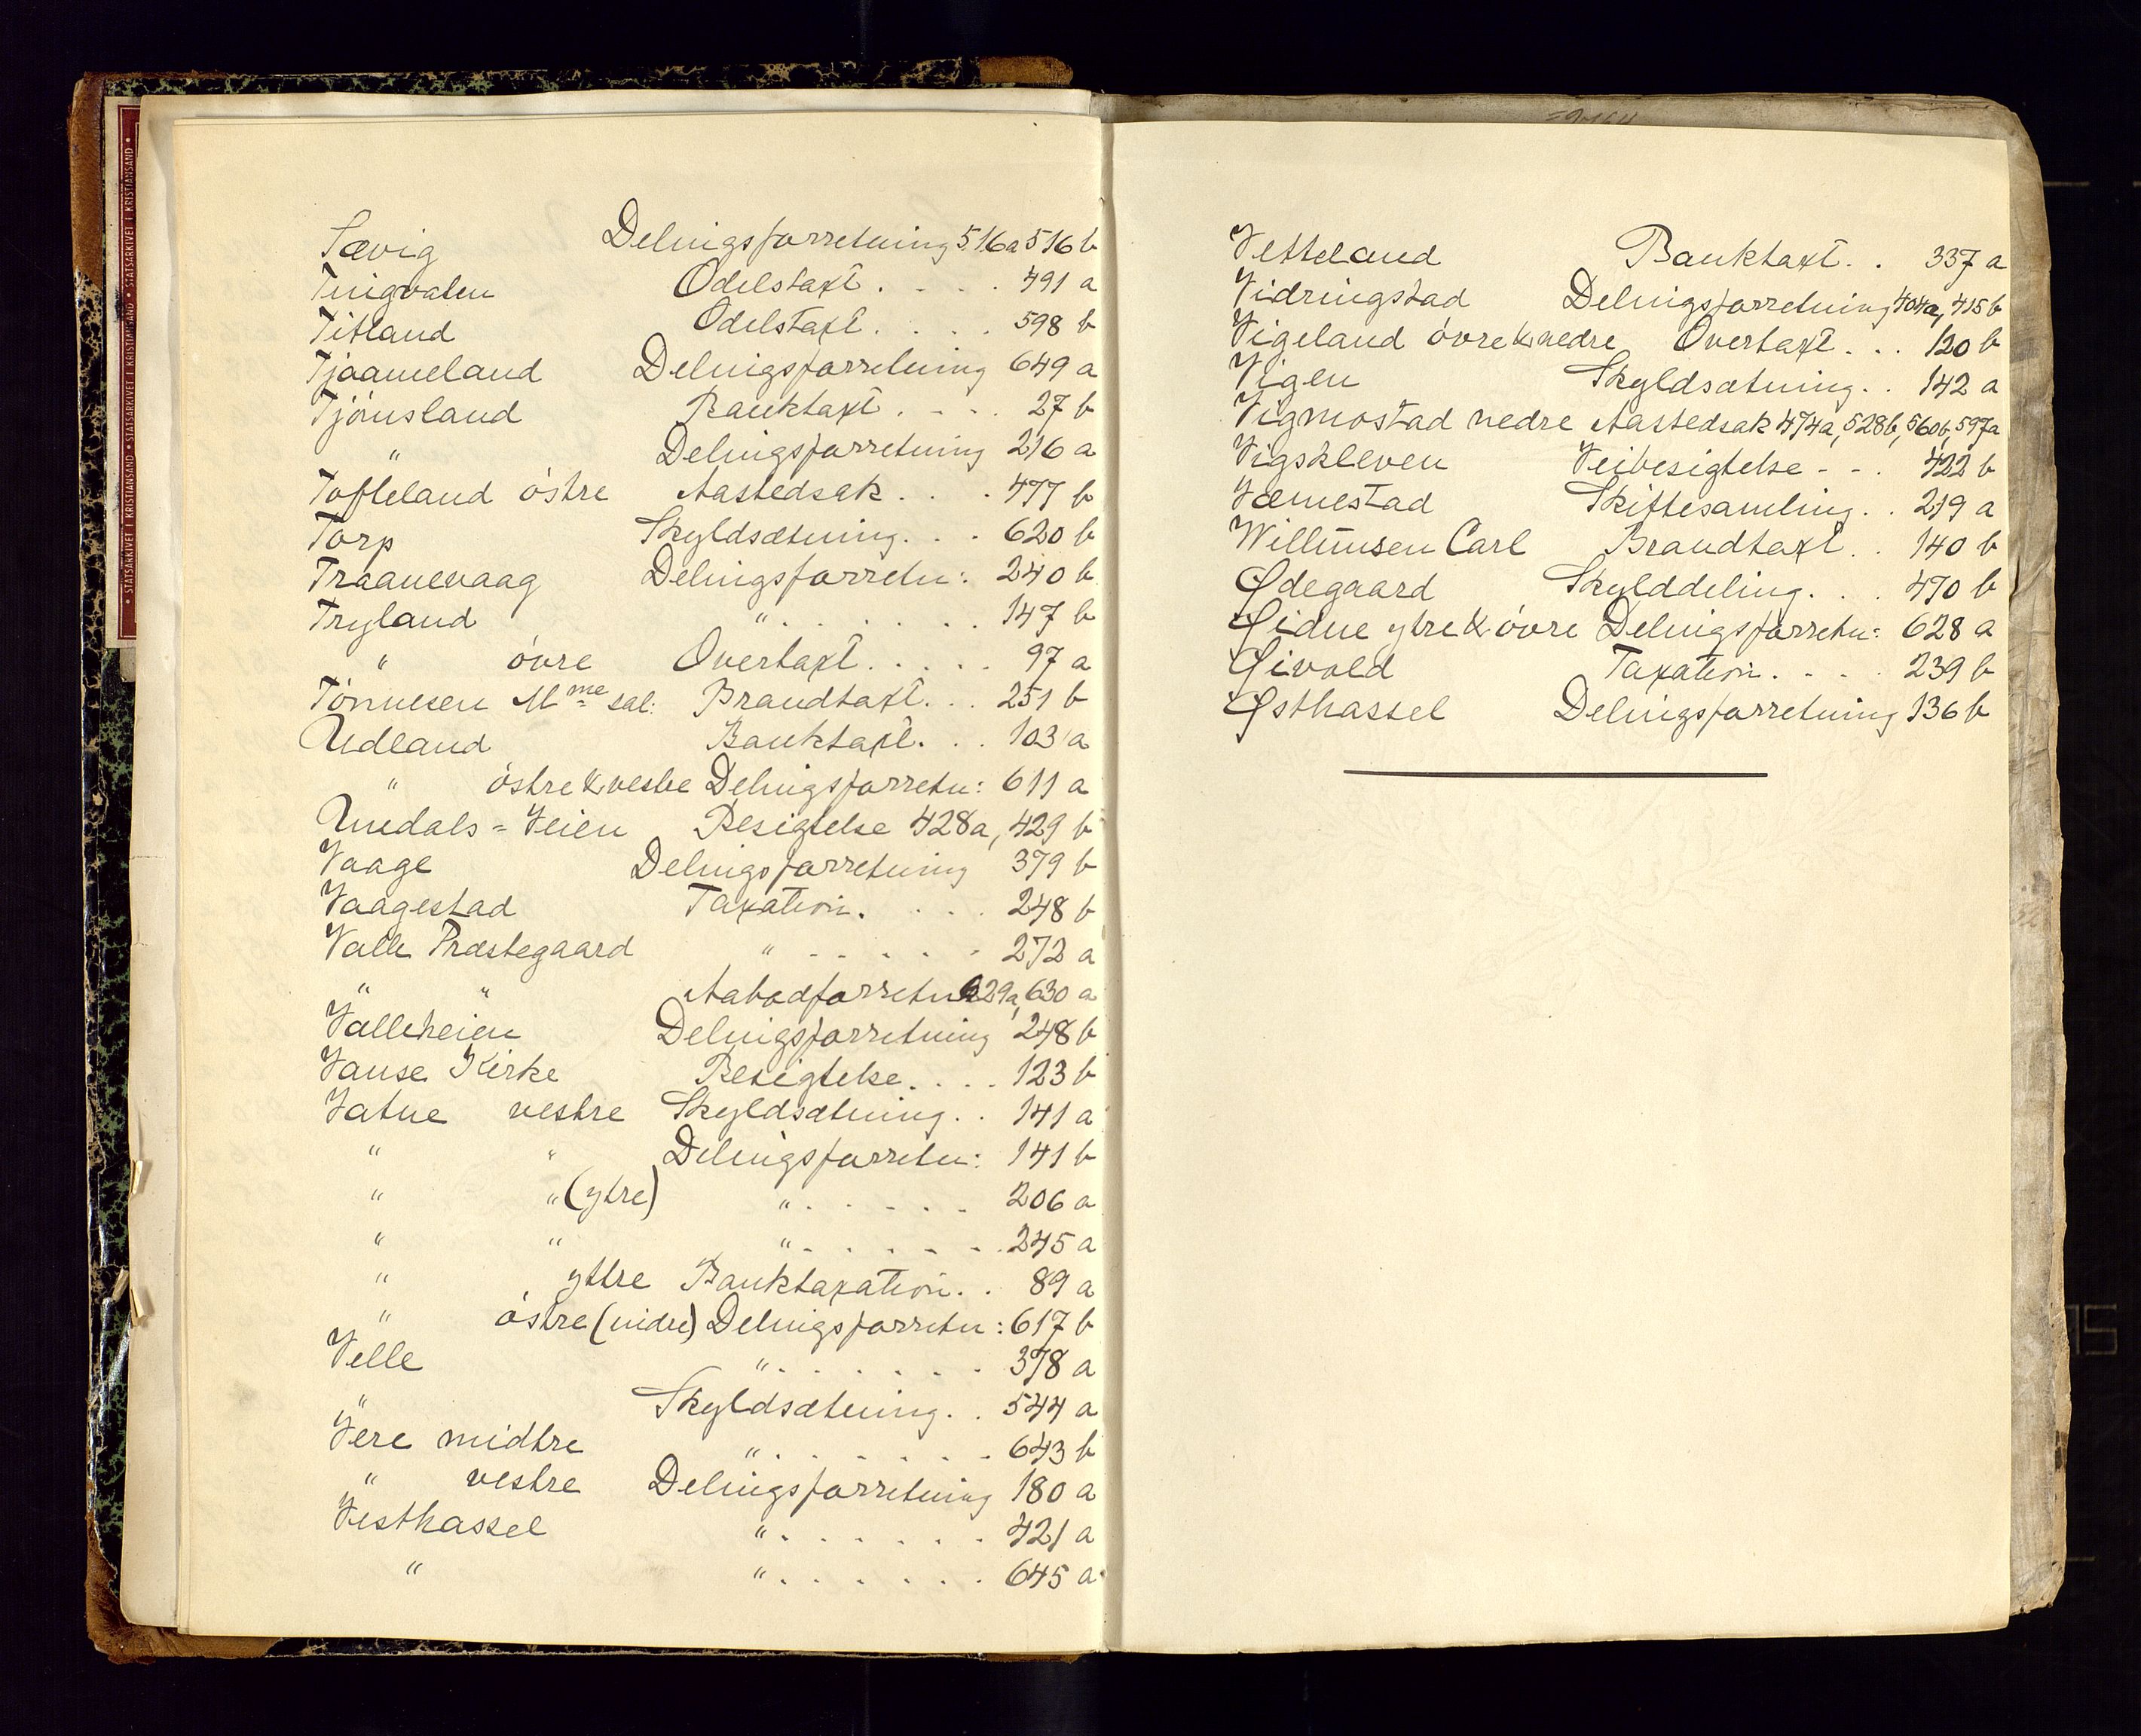 Sævig Delingsforretning 516a 516 b
Tingvaten Odelstaxt . . . . 491 a
Titland Odelstaxt. . . . 598 b
Tjaameland Delingsforretning 649 a
Tjönsland Banktaxt . . . . 27 b
" Delingsforretning 216 a
Tofteland östre Aastedsak . . . 477 b
Torp Skyldsætning. . . 620 b
Traanevaag Delingsforretn: 240 b
Tryland " . . . . . . 147 b
" övre Overtaxt . . . . . 97 a
Tönnesen Mme sal: Brandtaxt. . . 251 b
Udland Banktaxt. . . 103 a
" östre & vestre Delingsforretn: 611 a
Undals = Veien Besigtelse 428a, 429 b
Vaage Delingsforretning 379 b
Vaagestad Taxation. . . . 248 b
Valle Præstegaard " . . . . . 272 a
" " Aabodforretn 629a, 630 a
Valleheien Delingsforretning 248 b
Vanse Kirke Besigtelse. . . . 123 b
Vatne vestre Skyldsætning. . 141 a
" " Delingsforretn: 141 b
" " (ytre) " . . . . . 206 a
" " " . . . . . . 245 a
" yttre Banktaxation. . 89 a
" östre (indre) Delingsforretn: 617 b
Velle " . . . . . . 378 a
" Skyldsætning. . 544 a
Vere midtre " . . . . . . 643 b
" vestre Delingsforretning 180 a
Vesthassel " . . . . . . 421 a
" " . . . . . . 645 a
Vetteland Banktaxt. . 337 a
Vidringstad Delingsforretning 404a, 415 b
Vigeland övre & nedre Overtaxt . . . 120 b
Vigen Skyldsætning. . 142 a
Vigmostad nedre Aastedsak 474a, 528b, 560b, 597a
Vigskleven Veibesigtelse - - . 422 b
Væmestad Skiftesamling. . 219 a
Willumsen Carl Brandtaxt. . 140 b
Ødegaard Skylddeling. . . 470 b
Øidne ytre & övre Delingsforretn: 628 a
Øivold Taxation. . . . 239 b
Østhassel Delingsforretning 136 b
• STATSARKIVET I KRISTIANSAND • STATSARKIVET I KRISTIANSAND • STATSARKIVET I KRISTIANSAND •